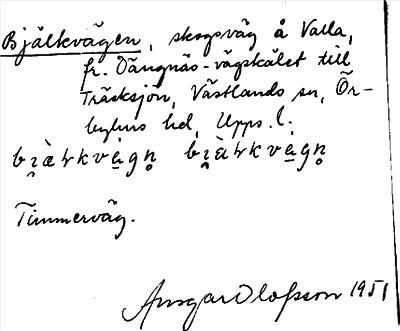 Bjälkvägen, skogsväg å Valla,
fr. Dängnäs-vägskälet till
Träsksjön, Västlands sn, Ör-
byhus hd, Upps. l.
Timmerväg.
Ansgar Olofsson 1951